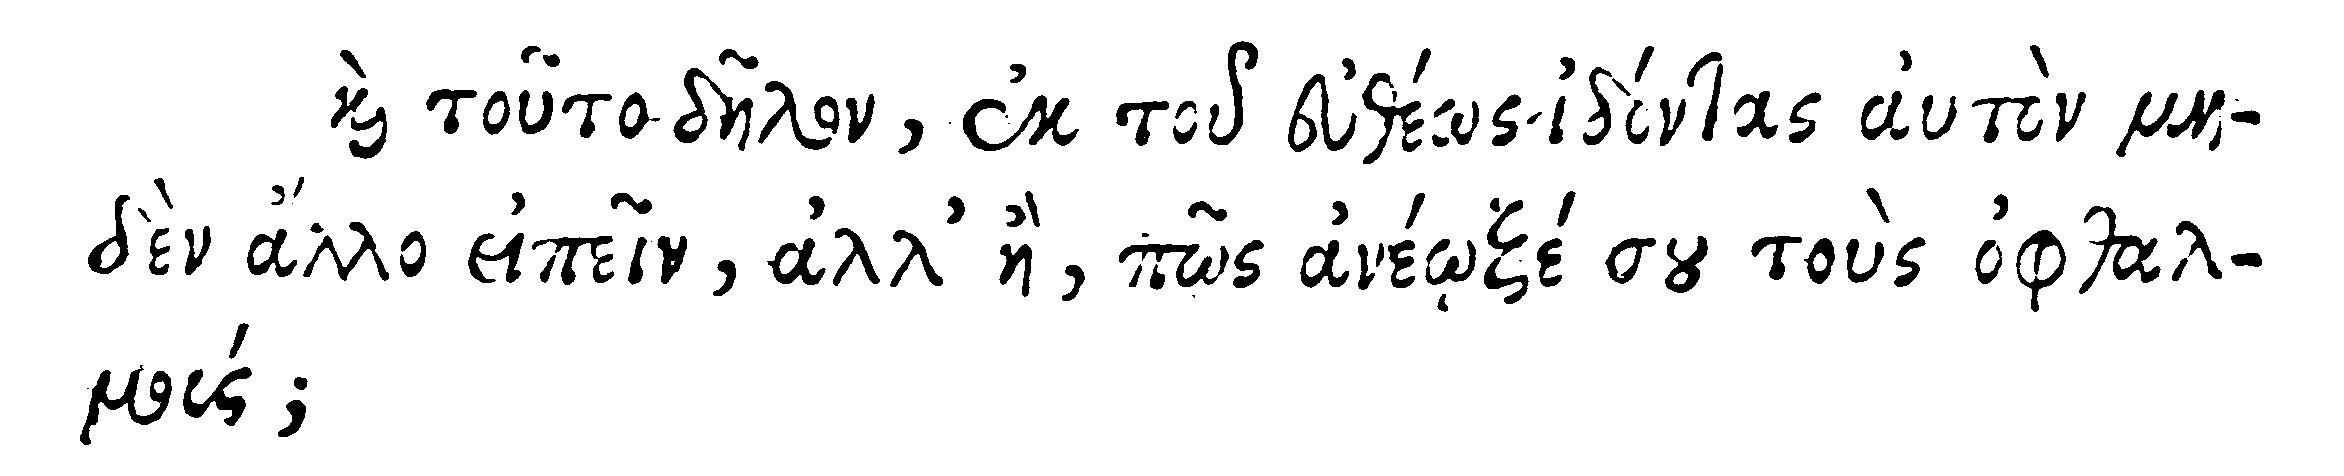 καὶ τοῦτο δῆλον, ἐκ τοῦ εὐθέως ἰδόντας αὐτὸν μη-
δὲν ἄλλο εἰπεῖν, ἀλλ’ ἢ, πῶς ἀνέῳξέ σου τοὺς ὀφθαλ-
μούς;